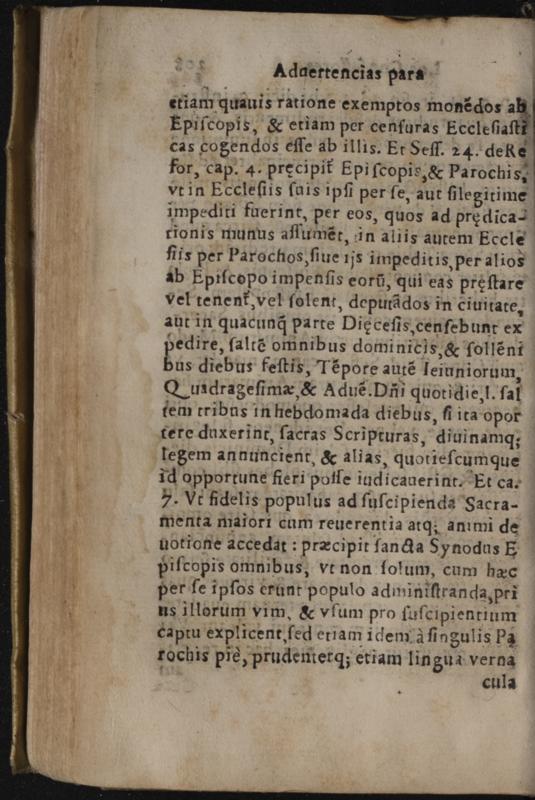 Aduertencias para
etiam quauis ratione exemptos monẽdos ab
Epiſcopis, & etiam per cenſuras Eccleſiaſti
cas cogendos eſſe ab illis. Et Seſſ. 24. deRe
for, cap. 4. pręcipit Epiſcopis,& Parochis,
vt in Eccleſiis ſuis ipſi per ſe, aut ſilegitime
impediti fuerint, per eos, quos ad prędica-
tionis munus aſſumẽt, in aliis autem Eccle
ſiis per Parochos,ſiue ijs impeditis,per alios
ab Epiſcopo impenſis eorũ, qui eas pręſtare
vel tenent̃,vel ſolent, deputãdos in ciuitate,
aut in quacunq̃ parte Dięceſis,cenſebunt ex
pedire, ſaltẽ omnibus dominicis,& ſollẽni
bus diebus feſtis, Tẽpore autẽ Ieiuniorum,
Quadrageſimæ,& Aduẽ.Dñi quotidie,l. ſal
tem tribus in hebdomada diebus, ſi ita opor
tere duxerint, ſacras Scripturas, diuinamq;
legem annuncient, & alias, quotieſcumque
id opportune fieri poſſe iudicauerint. Et ca.
7. Vt fidelis populus ad ſuſcipienda Sacra-
menta maiori cum reuerentia atq; animi de
uotione accedat : præcipit ſancta Synodus E
piſcopis omnibus, vt non ſolum, cum hæc
per ſe ipſos erunt populo adminiſtranda,pri
us illorum vim, & vſum pro ſuſcipientium
captu explicent,ſed etiam idem à ſingulis Pa
rochis piè, prudenterq; etiam lingua verna
cula